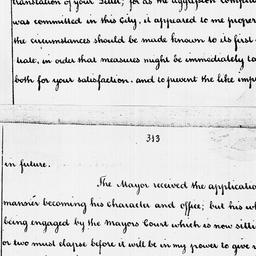 translation of your Letter; for as the aggression complain
was committed in this City, it appeared to me proper
the circumstances should be made known to its first
trate, in order that measures might be immediately ta
both for your satisfaction, and to prevent the like imp
313
in future.
The Mayor received the applicatio
manner becoming his character and office; but his wh
being engaged by the Mayors Court which is now sitti
or two must elapse before it will be in my power to give